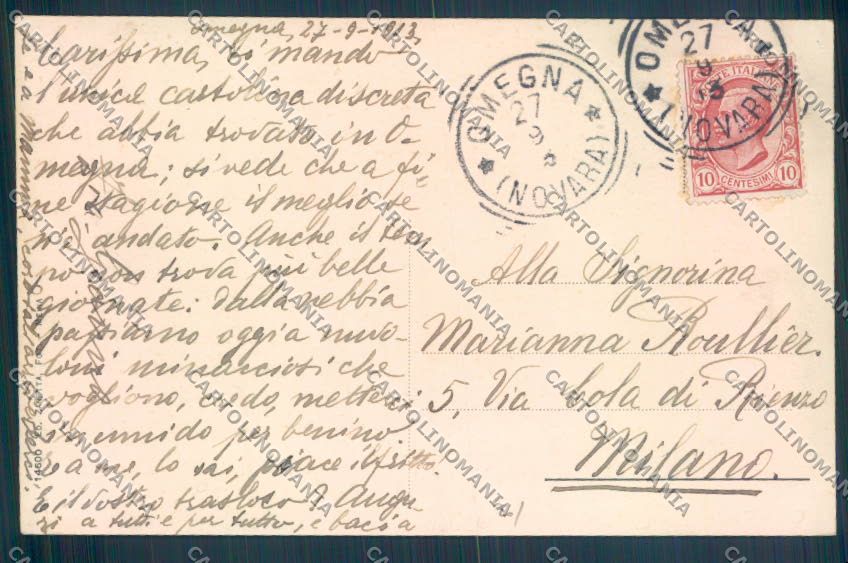 Omegna, 27-9-1913,
Carissima, vi mando
l'unica cartolina discreta
che abbia trovato in O-
megna; si vede che a fi-
ne stagione il meglio se
n'è andato. Anche il tem
po non trova più belle
giornate: dalla nebbia
passiamo oggi a nuvo-
loni minacciosi che
vogliono, credo, metterci
in umido per benino.
E a me, lo sai, piace il fritto.
E il vostro trasloco? Augu-
ri a tutti e per tutto, e bacia
OMEGNA
27
9
(NOVARA)
OMEGNA
27
9
13
(NOVARA)
POSTE ITALIANE
10 CENTESIMI 10
Alla Signorina
Marianna Roullier.
5, Via Cola di Rienzo
Milano.
14600
CARTOLINOMANIA